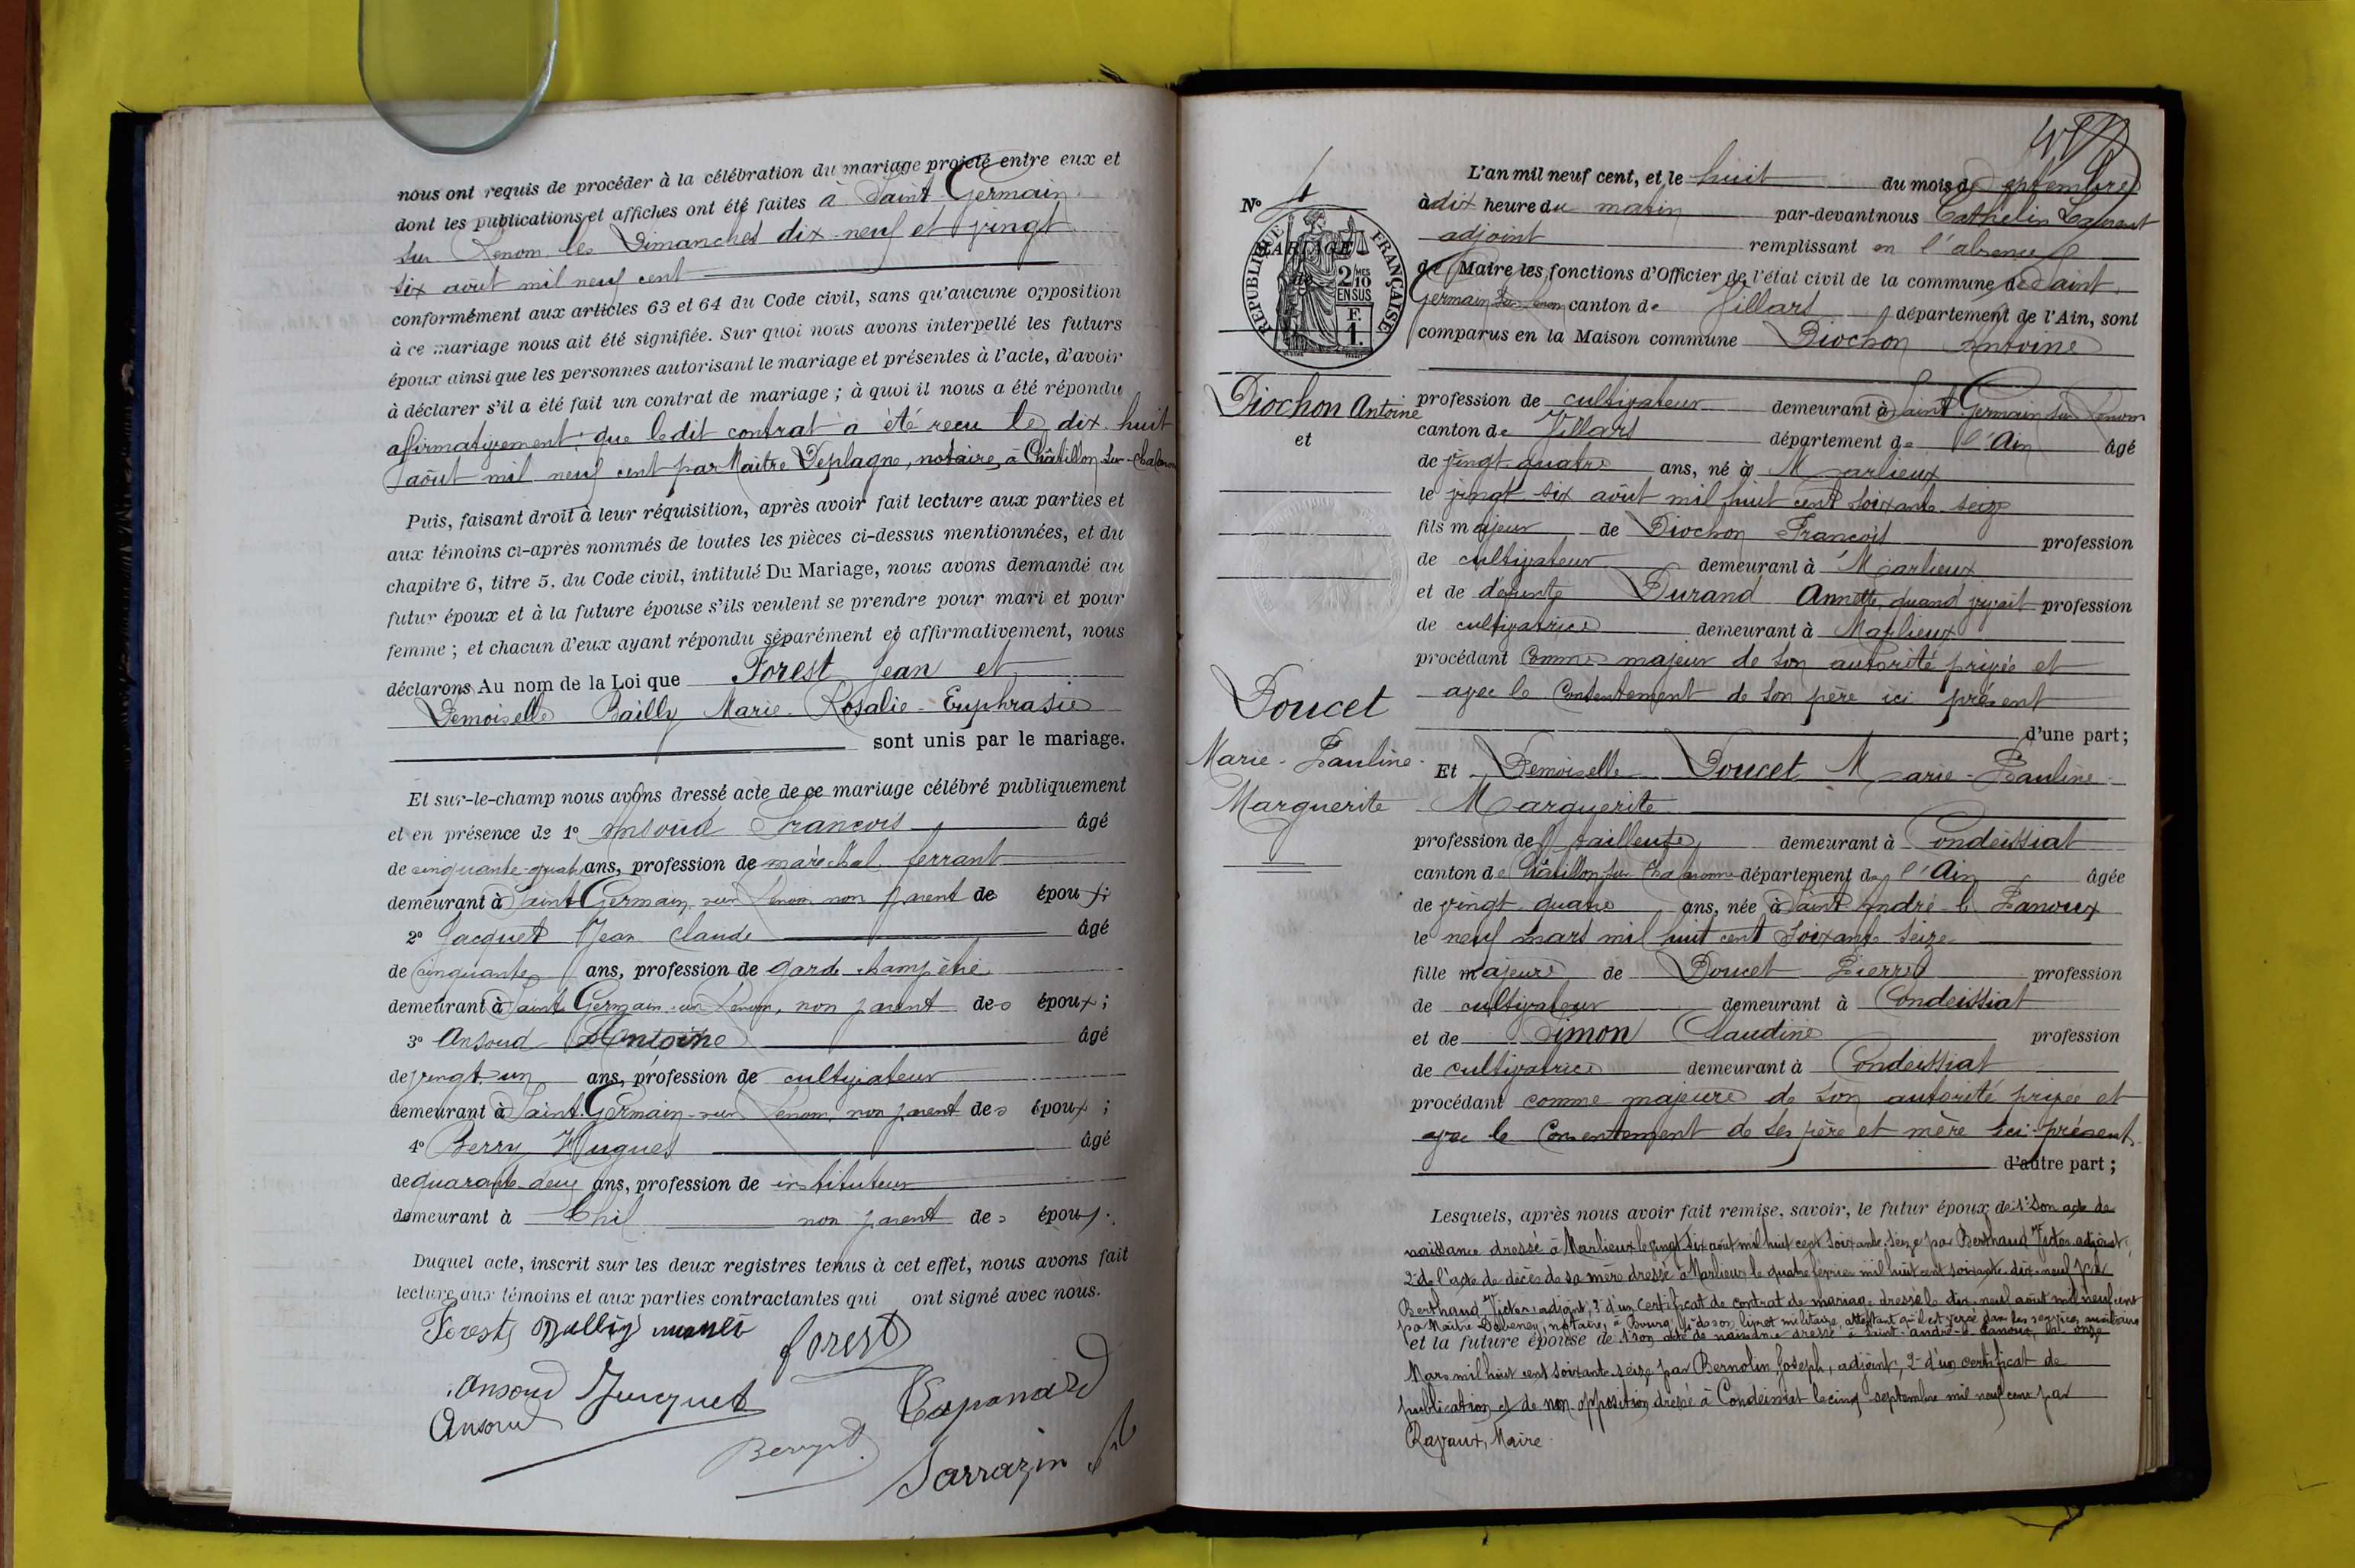 nous ont requis de procéder à la célébration du mariage projeté entre eux et
dont les publications et affiches ont été faites à Saint-Germain
sur Renom, les Dimanches dix-neuf et vingt
six août mil neuf cent
conformément aux articles 63 et 64 du Code civil, sans qu'aucune opposition
à ce mariage nous ait été signifiée. Sur quoi nous avons interpellé les futurs
époux ainsi que les personnes autorisant le mariage et présentes à l'acte, d'avoir
à déclarer s'il a été fait un contrat de mariage ; à quoi il nous a été répondu
affirmativement que ledit contrat à été reçu le dix-huit
août mil neuf cent par Maître Deplagne, notaire, à Châtillon-sur-Chalaronne
Puis, faisant droit à leur réquisition, après avoir fait lecture aux parties et
aux témoins ci-après nommés de toutes les pièces ci-dessus mentionnées, et du
chapitre 6, titre 5, du Code civil, intitulé Du Mariage, nous avons demandé au
futur époux et à la future épouse s'ils veulent se prendre pour mari et pour
femme ; et chacun d'eux ayant répondu séparément et affirmativement, nous
déclarons Au nom de la Loi que Forest Jean et
Demoiselle Bailly Marie-Rosalie-Euphrasie
sont unis par le mariage.
Et sur-le-champ nous avons dressé acte de ce mariage célébré publiquement
et en présence de 1° Ansoud François âgé
de cinquante-quatre ans, profession de maréchal ferrant
demeurant à Saint-Germain-sur Renom non parent de époux;
2° Jacquet Jean Claude âgé
de cinquante ans, profession de garde champêtre
demeurant à Saint-Germain-sur-Renom, non parent des époux ;
3° Ansoud Antoine âgé
de vingt-un ans, profession de cultivateur
demeurant à Saint-Germain-sur Renom, non parent des époux ;
4° Berry Hugues âgé
de quarante-deux ans, profession de instituteur
demeurant à non parent des époux.
Duquel acte, inscrit sur les deux registres tenus à cet effet, nous avons fait
lecture aux témoins et aux parties contractantes qui ont signé avec nous.
Forest
forest
Ansoud Jacquet
Ansoud
Sarrazin
L'an mil neuf cent, et le huit du mois de Septembre
N° 4
à dix heure du matin par-devant nous Cathelin Laurent
adjoint remplissant en l'absence
de Maire les fonctions d'Officier de l'état civil de la commune de Saint
Germain sur Renom canton de Villars département de l'Ain, sont
comparus en la Maison commune Diochon Antoine
RÉPUBLIQUE FRANÇAISE
MARIAGE
de
2/10 MES
EN SUS
F.
1.
Diochon Antoine
et
Doucet
Marie-Pauline-
Marguerite
profession de cultivateur demeurant à Saint Germain sur Renom
canton de Villars département de l'Ain âgé
de vingt-quatre ans, né à Marlieux
le vingt-six août mil huit cent soixante-seize
fils majeur de Diochon François profession
de cultivateur demeurant à Marlieux
et de défunte Durand Annette, quand vivait profession
de cultivatrice demeurant à Marlieux
procédant comme majeur de son autorité privée et
avec le consentement de son père ici présent
d'une part ;
Et Demoiselle Doucet Marie-Pauline-
Marguerite
profession de tailleuse demeurant à Condeissiat
canton de Châtillon sur Chalaronne département de l'Ain âgée
de vingt-quatre ans, née à Saint André-le Panoux
le neuf mars mil huit cent soixante seize
fille majeure de Doucet Pierre profession
de cultivateur demeurant à Condeissiat
et de Simon Claudine profession
de cultivatrice demeurant à Condeissiat
procédant comme majeure de son autorité privée et
avec le consentement de ses père et mère ici présent
d'autre part ;
Lesquels, après nous avoir fait remise, savoir, le futur époux de 1° son acte de
naissance dressé à Marlieux le vingt-six août mil huit cent soixante-seize par Berthaud Victor adjoint;
2° de l'acte de décès de sa mère dressé à Marlieux le quatre février mil huit cent soixante-dix-neuf par
Berthaud Victor adjoint; 3° d'un certificat de contrat de mariage dressé le dix-neuf août mil neuf cent
par Maître notaire, à Bourg; 4° de son livret militaire, attestant qu'il est versé dans les services auxiliaires
et la future épouse de 1° son acte de naissance dressé à Saint-André-le-Panoux, le onze
Mars mil huit cent soixante-seize par Bernolin Joseph, adjoint, 2° d'un certificat de
publication et de non-opposition dressé à Condeissiat le cinq septembre mil neuf cent par
Ravaux, Maire